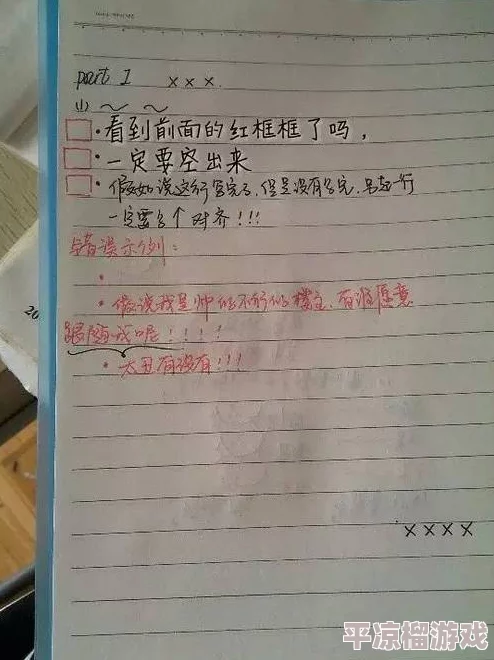 part 1  ×××.
(1) ~ ~
·看到前面的红框框了吗，
·一定要空出来
·假如说这行写完了，但是没有写完，另起一行
一定要多个对齐!!!
错误示例：
·
·假说我是帅的不行的楼主，有谁愿意
跟随我呢!!!!
·太丑有没有!!!
××××
平凉榴游戏